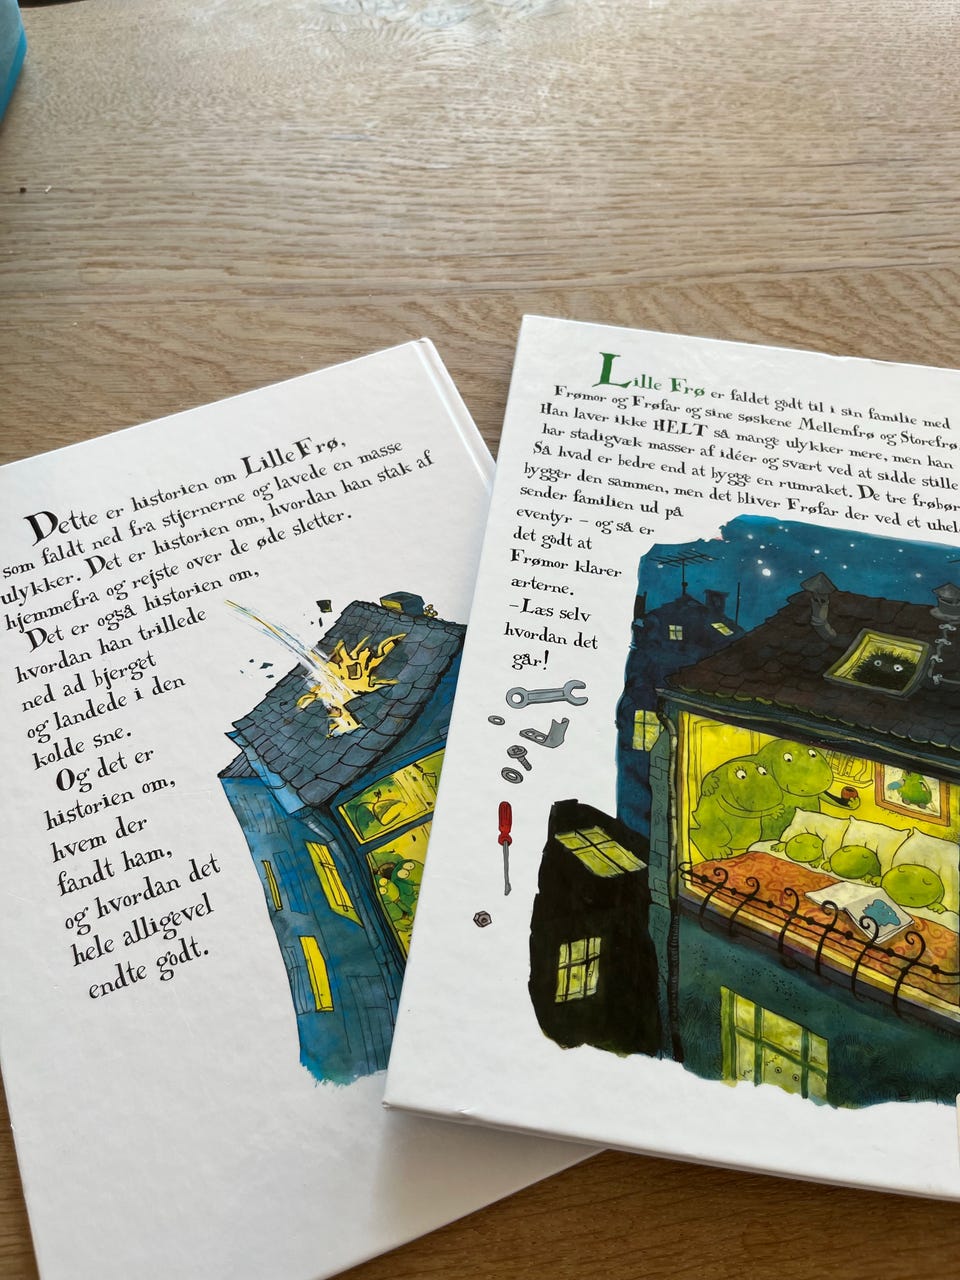 Dette er historien om Lille Frø,
som faldt ned fra stjernerne og lavede en masse
ulykker. Det er historien om, hvordan han stak af
hjemmefra og rejste over de øde sletter.
Det er også historien om,
hvordan han trillede
ned ad bjerget
og landede i den
kolde sne.
Og det er
historien om,
hvem der
fandt ham,
og hvordan det
hele alligevel
endte godt.
Lille Frø er faldet godt til i sin familie med
Frømor og Frøfar og sine søskene Mellemfrø og Storefrø.
Han laver ikke HELT så mange ulykker mere, men han
har stadigvæk masser af idéer og svært ved at sidde stille
Så hvad er bedre end at bygge en rumraket. De tre
bygger den sammen, men det bliver Frøfar der ved et
sender familien ud på
eventyr – og så er
det godt at
Frømor klarer
ærterne.
–Læs selv
hvordan det
går!